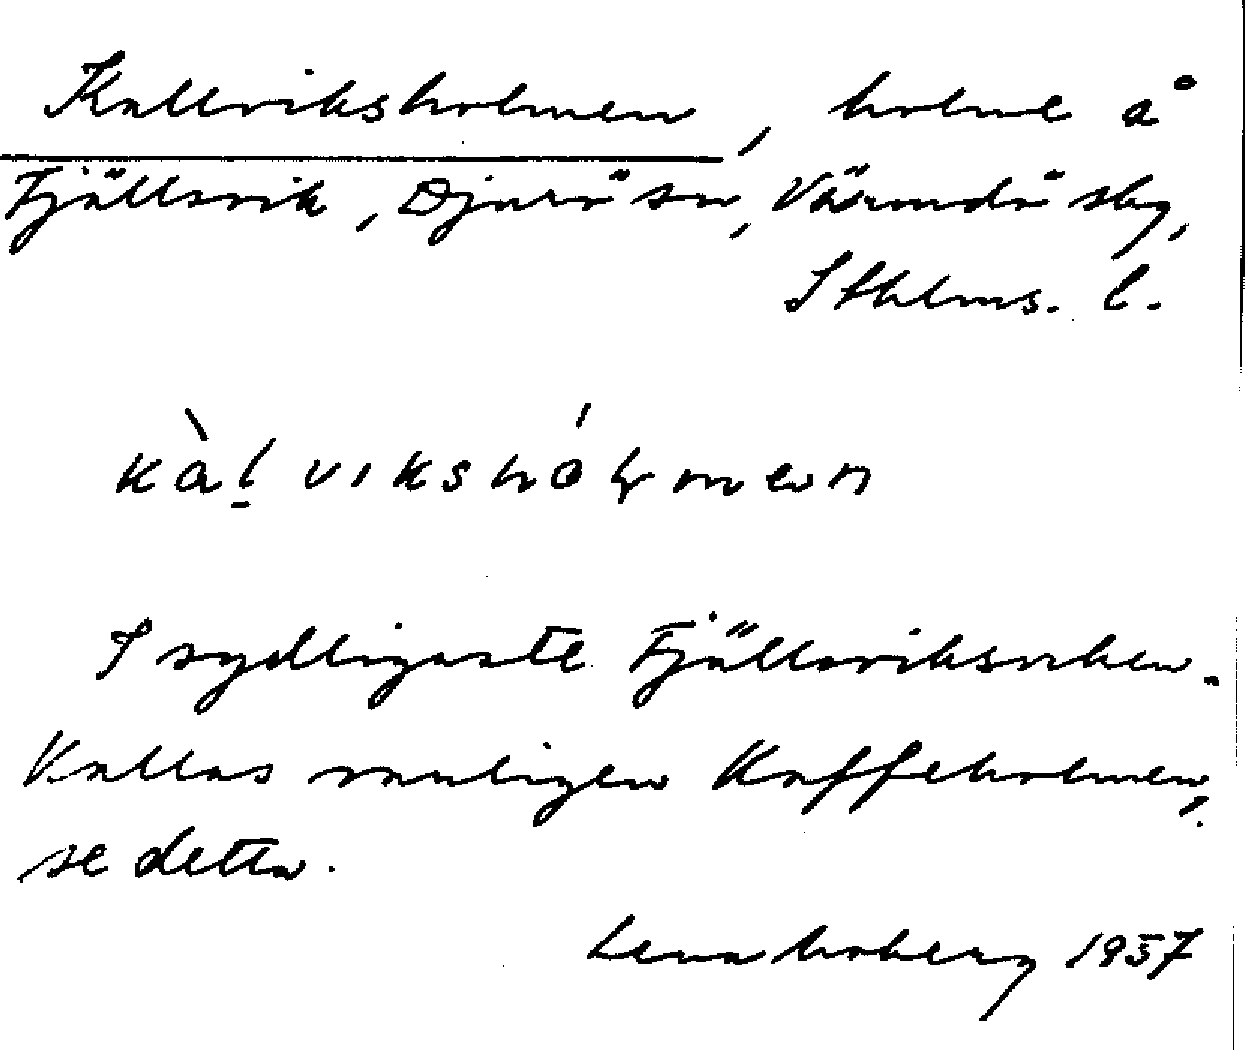 Kallviksholmen, holme å
Fjällsvik, Djurö sn, Värmdö skg,
Sthlms. l.
kàl̠vikshólmen
I sydligaste Fjällsviksviken.
Kallas vanligen Kaffeholmen,
se detta.
Lena Moberg 1957